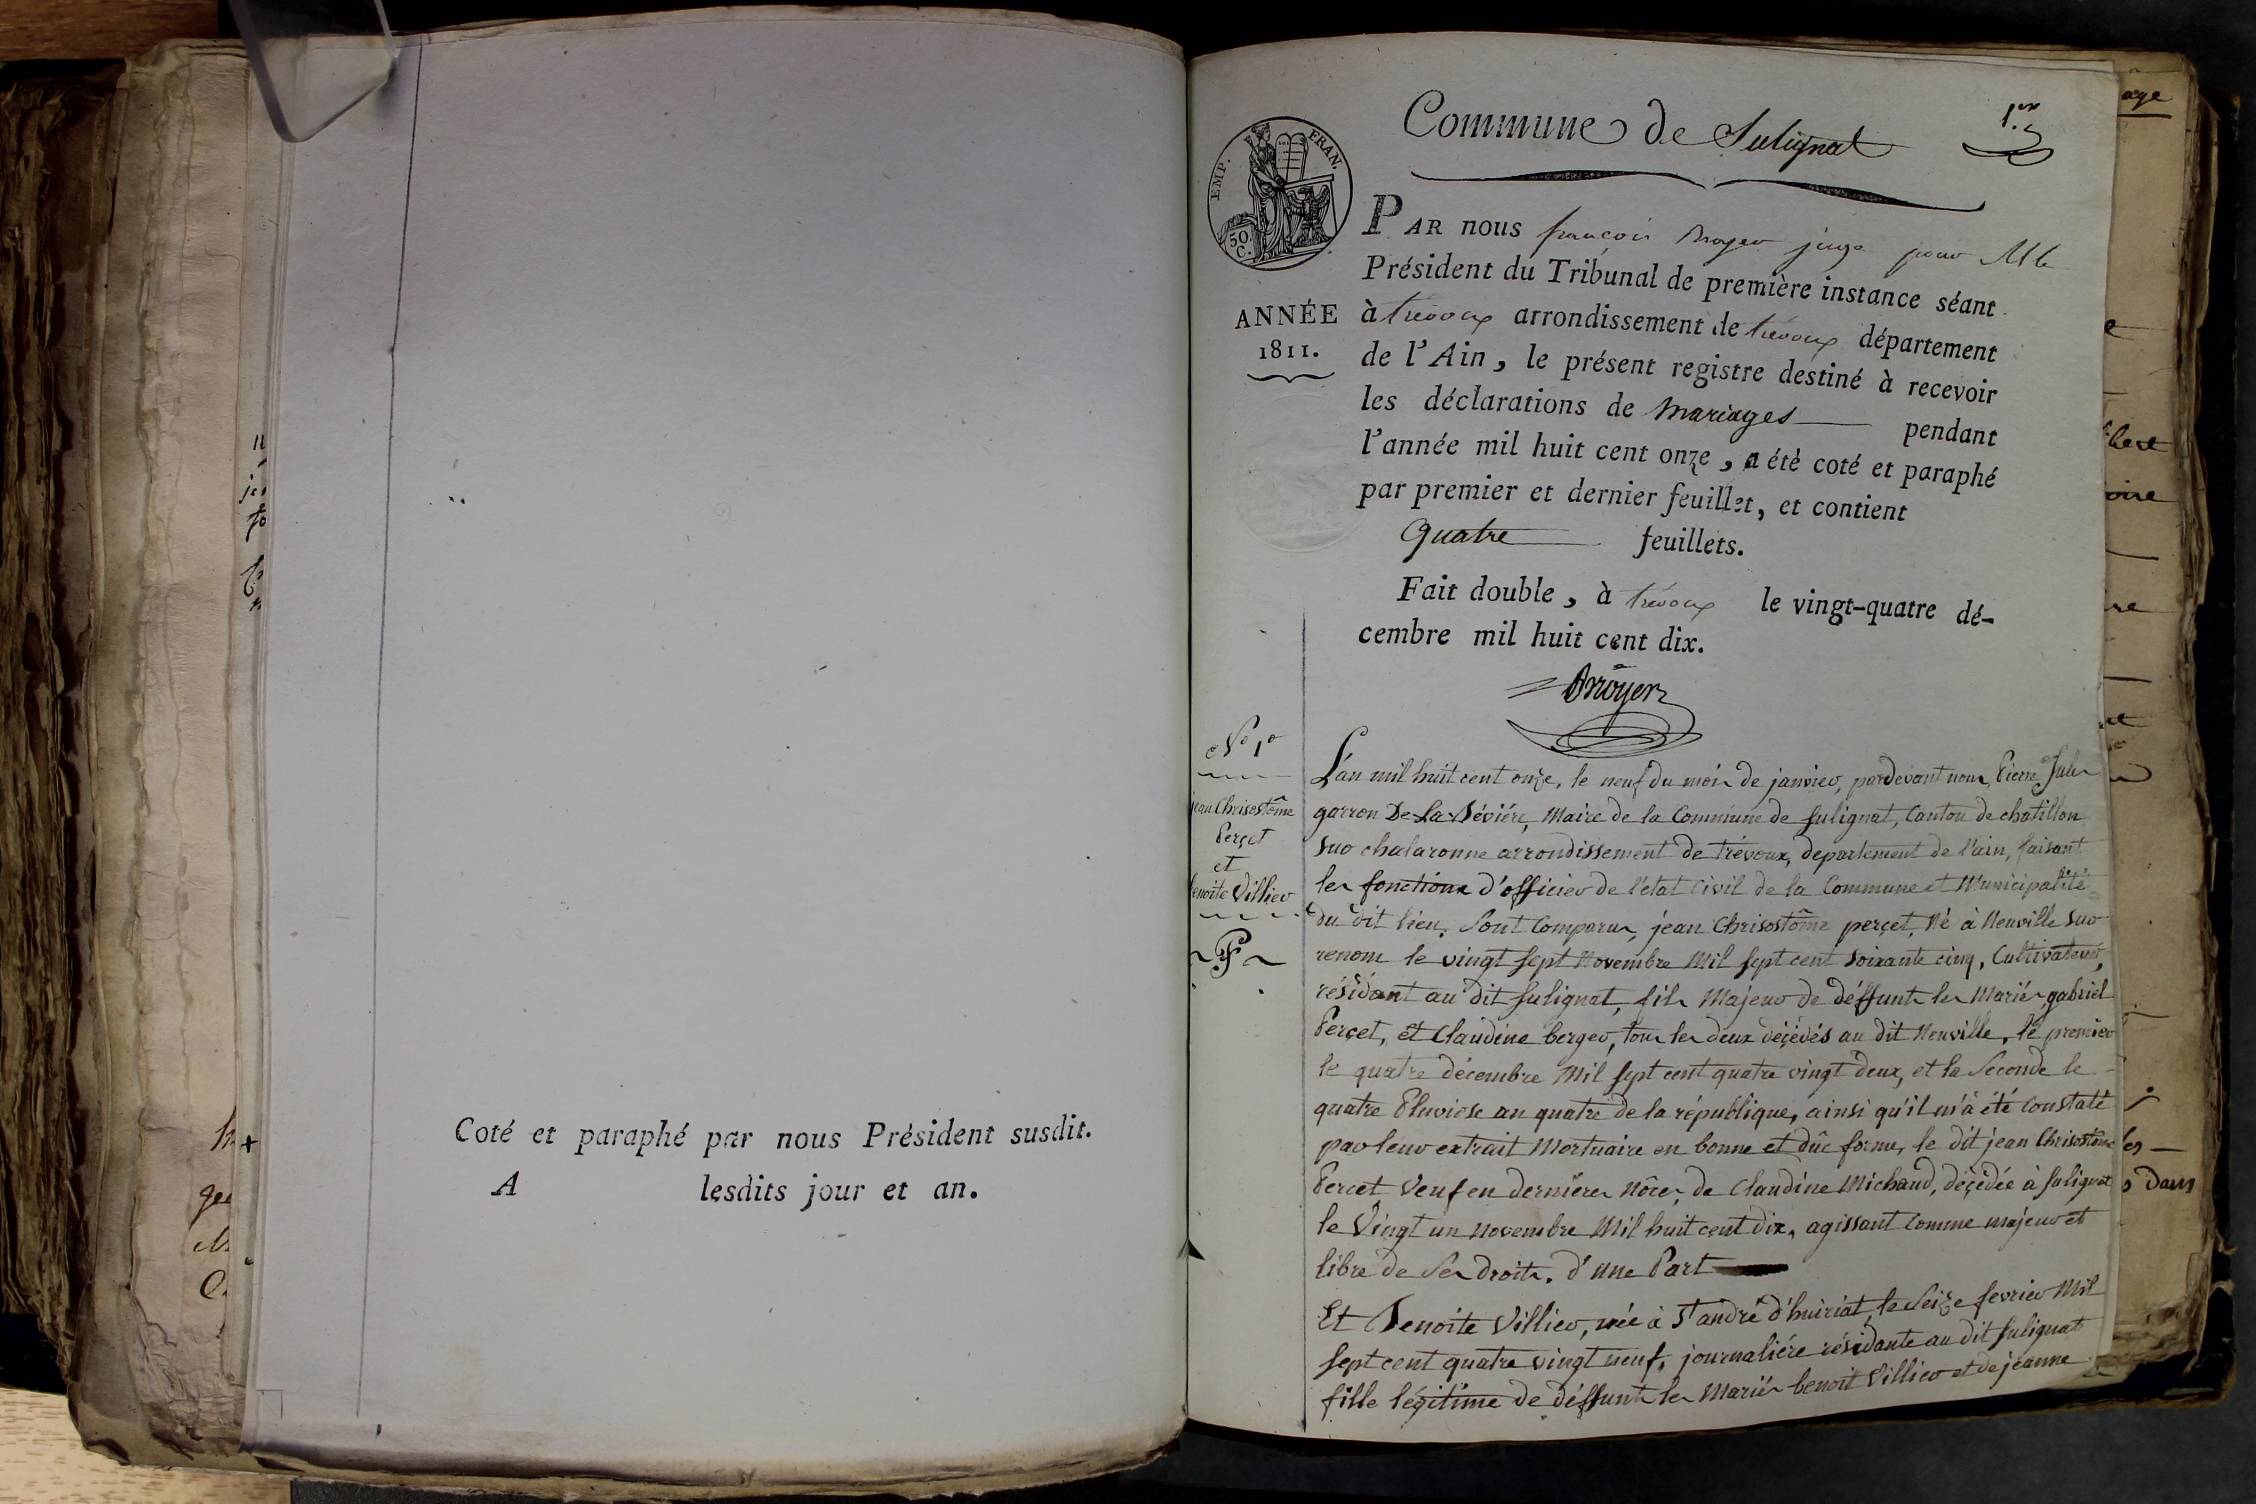 Coté et paraphé par nous Président susdit.
A lesdits jour et an.
Commune de Sulignat
1.er
EMP. FRAN.
50 C.
PAR nous françois juge pour M le
Président du Tribunal de première instance séant
ANNÉE
1811.
à trévoux arrondissement de trévoux département
de l'Ain, le présent registre destiné à recevoir
les déclarations de Mariages pendant
l'année mil huit cent onze, a été coté et paraphé
par premier et dernier feuillet, et contient
Quatre feuillets.
Fait double, à trévoux le vingt-quatre dé-
cembre mil huit cent dix.
N° 1er
jean Chrisostôme
Perçet
et
benoite Villier
L'an mil huit cent onze, le neuf du mois de janvier, pardevant nous, Pierre Jules
garron De La Bévière, Maire de la Commune de Sulignat, Canton de chatillon
sur chalaronne arrondissement de Trévoux, departement de l'ain, faisant
les fonctions d'officier de l'état Civil de la Commune et Municipalité
du dit lieu. Sont Comparus, jean Chrisostôme perçet, Né à Neuville sur
renom le vingt sept Novembre Mil sept cent soixante cinq, Cultivateur,
résidant au dit Sulignat, fils Majeur de déffunts les Mariés, gabriel
Perçet, et Claudine berger, tous les deux décédés au dit Neuville, le premier
le quatre décembre Mil sept cent quatre vingt deux, et la Seconde le
quatre Pluviose an quatre de la république, ainsi qu'il m'à été Constaté
par leur extrait Mortuaire en bonne et dûe forme, le dit jean Chrisostôme
Percet Veuf en dernières Nôces de Claudine Michaud, décédée à Sulignat
le Vingt un Novembre Mil huit cent dix, agissant Comme majeur et
libre de Ses droits. d'une Part
Et Benoite Villier, née à St andré d'huiriat, le Seize fevrier Mil
sept cent quatre vingt neuf, journalière résidante au dit Sulignat
fille légitime de déffunts les Mariés benoit Villier et de jeanne